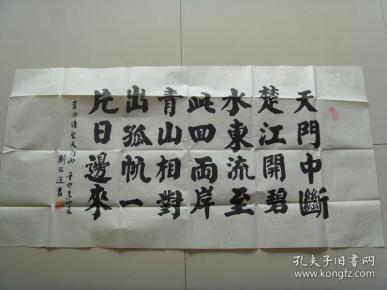 天門中斷
楚江開碧
水東流至
此回兩岸
青山相對
出孤帆一
片日邊來
李白詩望天門山
書
孔夫子旧书网